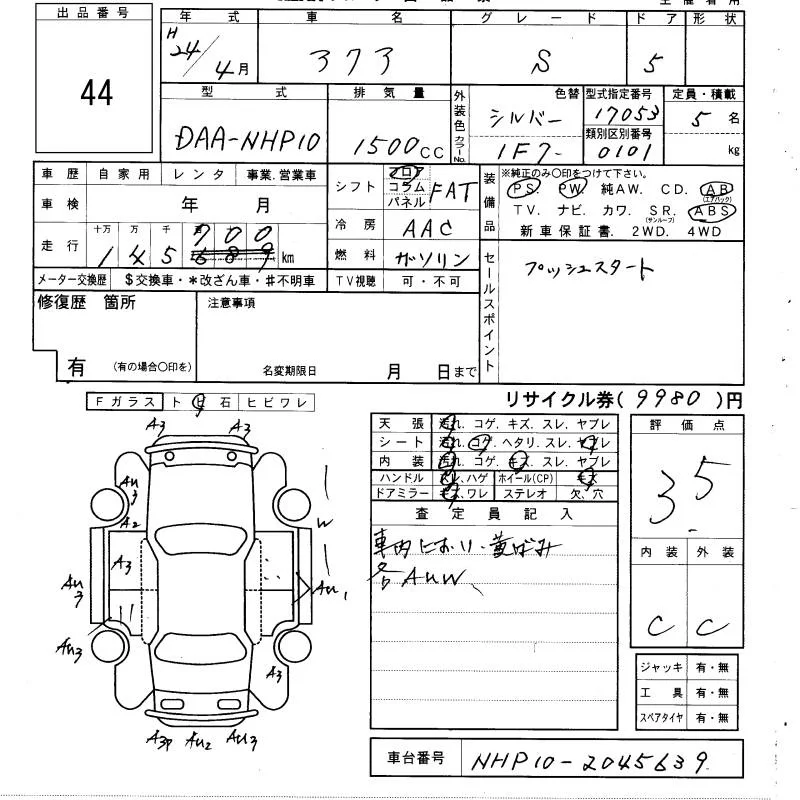 出品番号
44
年式 車名 グレード ドア 形状
H
24/4月 373 S 5
型式 排気量 外装色 色替 カラーNo. 型式指定番号 定員・積載
DAA-NHP10 1500CC シルバー 17053 5名
1F7- 類別区別番号 0101 kg
車歴 自家用 レンタ 事業.営業車
車検 年 月
走行 十万 万 千 百
1 4 5 700
689 km
メーター交換歴 $交換車・*改ざん車・#不明車
シフト フロア コラム パネル FAT
冷房 AAC
燃料 ガソリン
TV視聴 可・不可
装備品 ※純正のみ〇印をつけて下さい。
PS. PW. 純AW. CD. AB (エアバック)
TV. ナビ. カワ. SR. (サンルーフ) ABS
新車保証書. 2WD. 4WD
セールスポイント
プッシュスタート
修復歴 箇所
有 (有の場合〇印を)
注意事項
名変期限日 月 日まで
リサイクル券(9980)円
Fガラス トビ石 ヒビワレ
天張 汚れ. コゲ. キズ. スレ. ヤブレ
シート 汚れ. コゲ. ヘタリ. スレ. ヤブレ
内装 汚れ. コゲ. キズ. スレ. ヤブレ
ハンドル スレ、ハゲ ホイール(CP) キズ
ドアミラー キズ、ワレ ステレオ 欠、穴
査定員記入
車内におい・黄ばみ
各AUW、
評価点
3.5
内装 外装
C C
ジャッキ 有・無
工具 有・無
スペアタイヤ 有・無
A3 A3
AU3
A2
W
A3
AU3 AU1
AU3
A3
A3P AU2 AU3
車台番号 NHP10-2045639